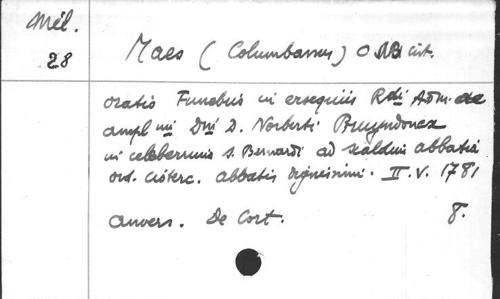 Mél.
28
Maes (Columbanus) O cist.
oratio Funebris in exsequiis Rdi Adm. ac
ampl mi Dni D. Norberti Bruyndoncx
in celeberrimis s. Bernardi ad scaldim abbatiâ
ord. cisterc. abbatis dignissimi. II. V. 1781
anvers. De Cort. 8.